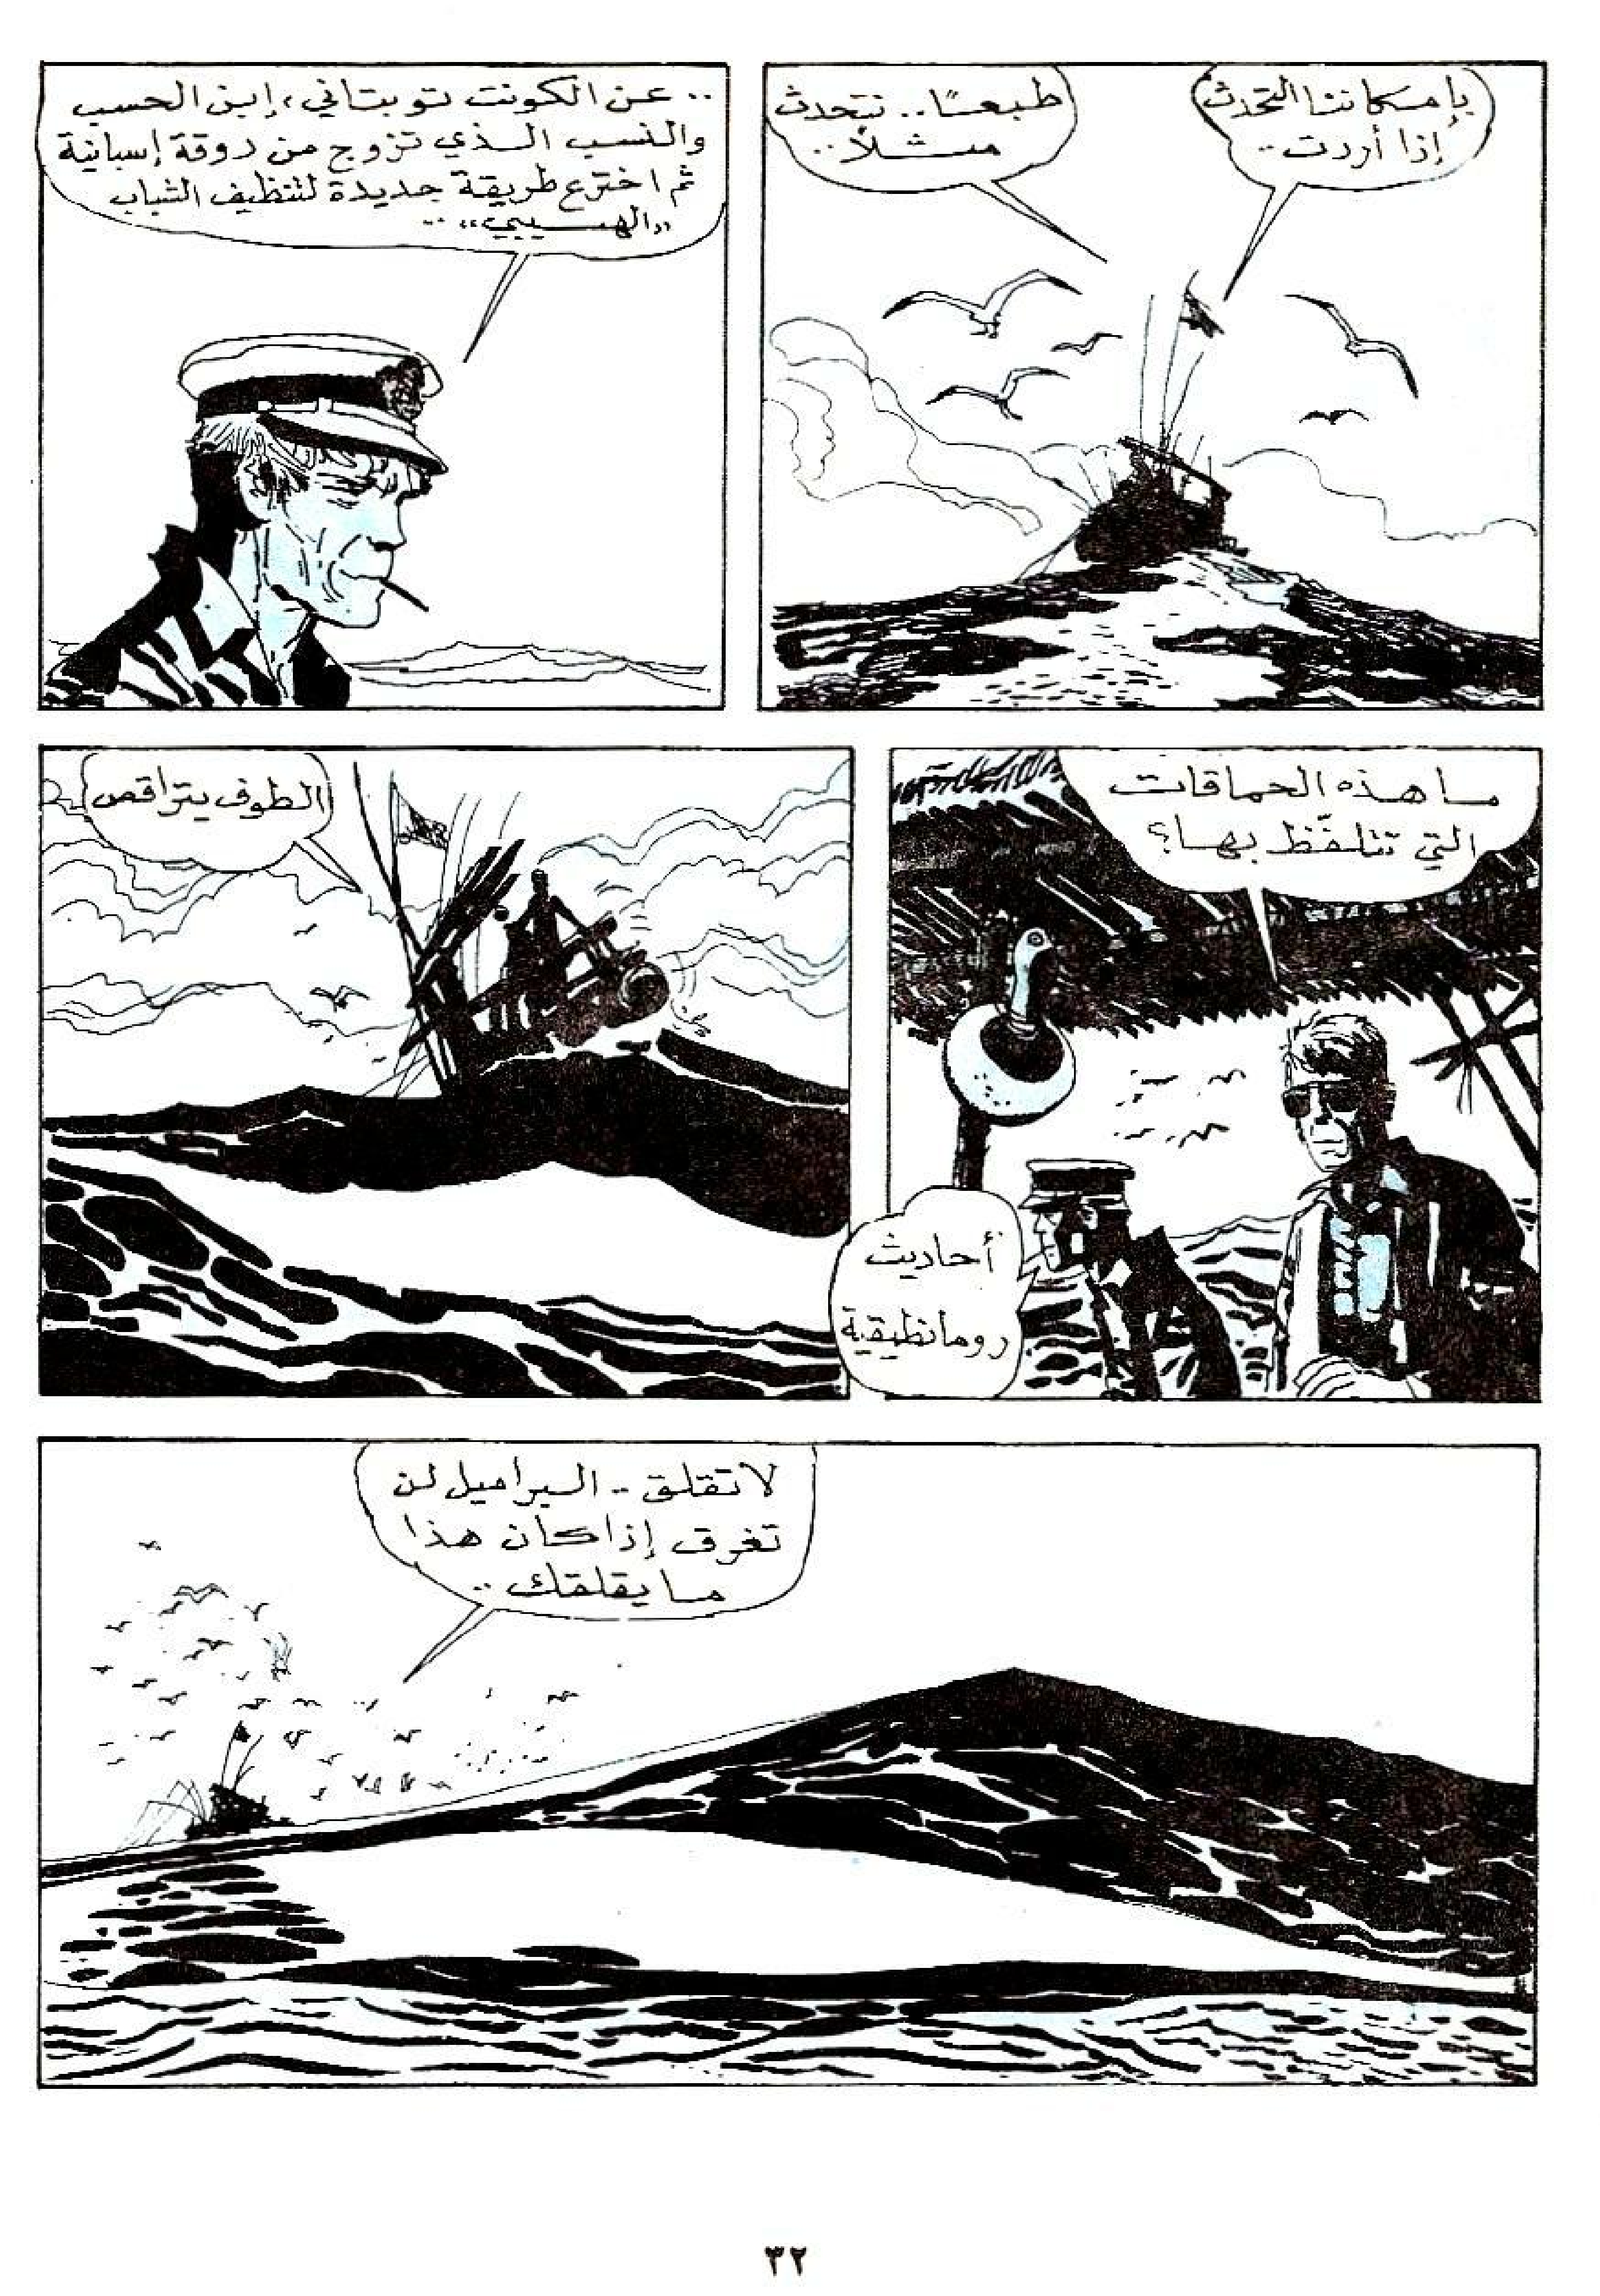 بإمكاننا التحدث
إذا أردت..
طبعًا.. نتحدث
مثلاً..
.. عن الكونت توبتاني، إبن الحسب
والنسب الذي تزوج من دوقة إسبانية
ثم اخترع طريقة جديدة لتنظيف الشباب
«الهيبي»..
ما هذه الحماقات
التي تتلفّظ بها؟
أحاديث
رومانطيقية
الطوف يتراقص
لا تقلق.. البراميل لن
تغرق إذا كان هذا
ما يقلقك..
٣٢